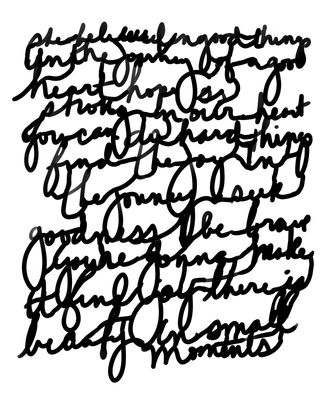 she believed in good things
In the journey of a good
heart hope is
strong in our heart
you can do hard things
find the joy in
the journey seek
goodness be brave
you're gonna make
it find joy there is
beauty in small
moments